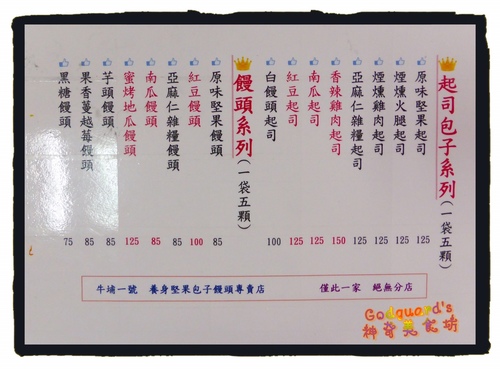 起司包子系列(一袋五顆)
原味堅果起司 125
煙燻火腿起司 125
煙燻雞肉起司 125
亞麻仁雜糧起司 125
香辣雞肉起司 150
南瓜起司 125
紅豆起司 125
白饅頭起司 100
饅頭系列(一袋五顆)
原味堅果饅頭 85
紅豆饅頭 100
亞麻仁雜糧饅頭 85
南瓜饅頭 85
蜜烤地瓜饅頭 125
芋頭饅頭 85
果香蔓越莓饅頭 85
黑糖饅頭 75
牛埔一號 養身堅果包子饅頭專賣店 僅此一家 絕無分店
Godguard's
神奇美食坊